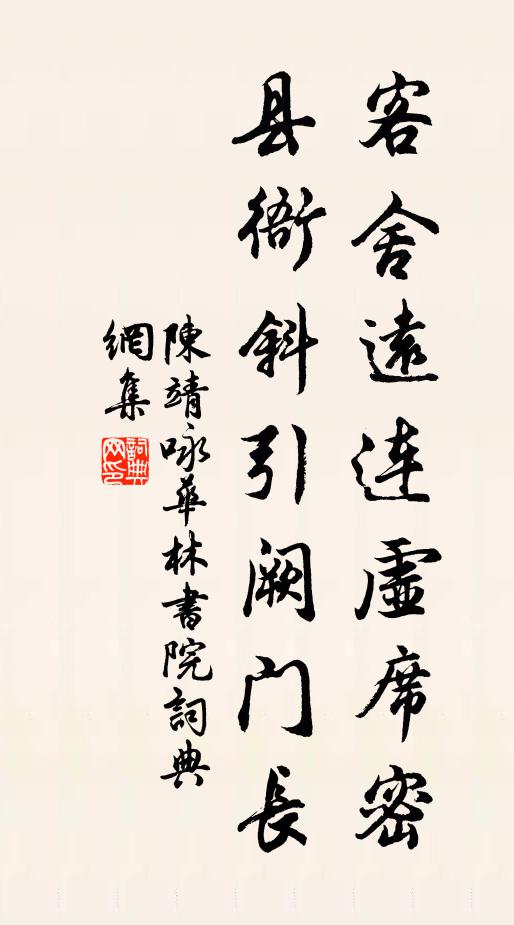 客舍遠连虛席密
县衙斜引阙门長
陳靖咏華林書院詞典
網集
詞典网印